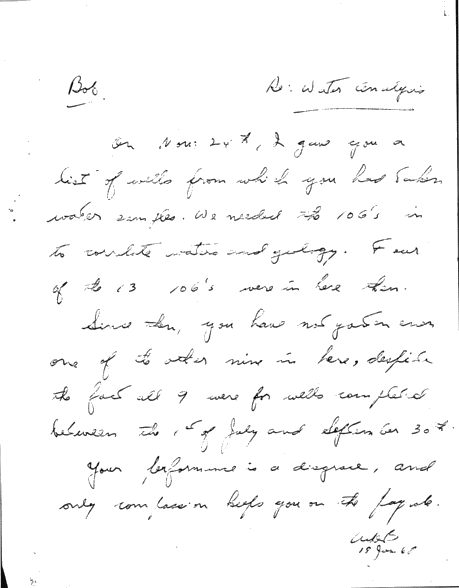 Bob
Re: Water Analysis
On Nov. 24th, I gave you a
list of wells from which you had taken
water samples. We needed the 106's in
to correlate waters and geology. Four
of the 13 106's were in here then.
Since then, you have not gotten even
one of the other nine in here, despite
the fact all 9 were for wells completed
between the 1st of July and September 30th.
Your performance is a disgrace, and
only compassion keeps you on the payroll.
15 Jan 68